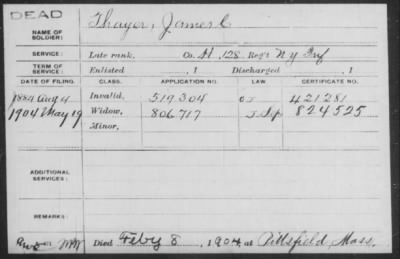 DEAD
NAME OF SOLDIER: Thayer, James C
SERVICE: Late rank, Co. H, 128 Reg't N.Y. Inf
TERM OF SERVICE: Enlisted , 1 Discharged , 1
DATE OF FILING. CLASS. APPLICATION NO. LAW. CERTIFICATE NO.
1884 Aug 4 Invalid, 519304 421281
1904 May 19 Widow, 806717 824525
Minor,
ADDITIONAL SERVICES:
REMARKS:
Died Feby 8, 1904, at Pittsfield, Mass.